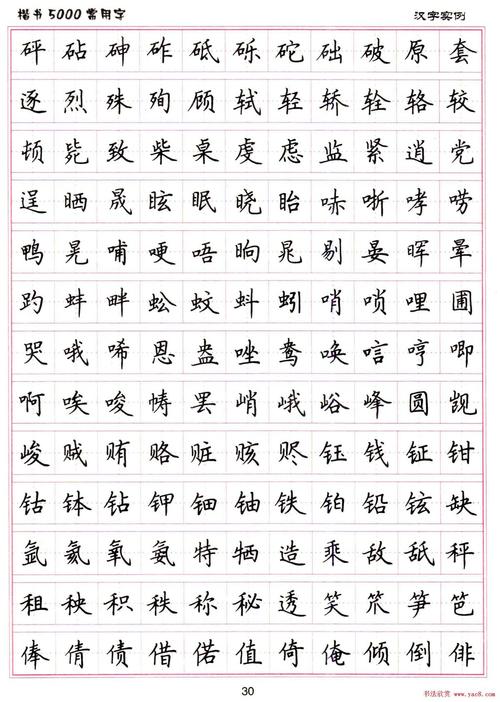 楷书5000常用字 汉字实例
砰砧砷砟砥砾砣础破原套
逐烈殊殉顾轼轻轿辁辂较
顿毙致柴桌虔虑监紧逍党
逞晒晟眩眠晓眙哧哳哮唠
鸭晃哺哽唔晌晁剔晏晖晕
趵蚌畔蚣蚊蚪蚓哨唢哩圃
哭哦唏恩盎唑鸯唤唁哼唧
啊唉唆帱罢峭峨峪峰圆觊
峻贼贿赂赃赅赆钰钱钲钳
钴钵钻钾钿铀铁铂铅铉缺
氩氦氧氨特牺造乘敌舐秤
租秧积秩称秘透笑笊笋笆
俸倩债借偌值倚俺倾倒俳
30
书法欣赏 www.yac8.com